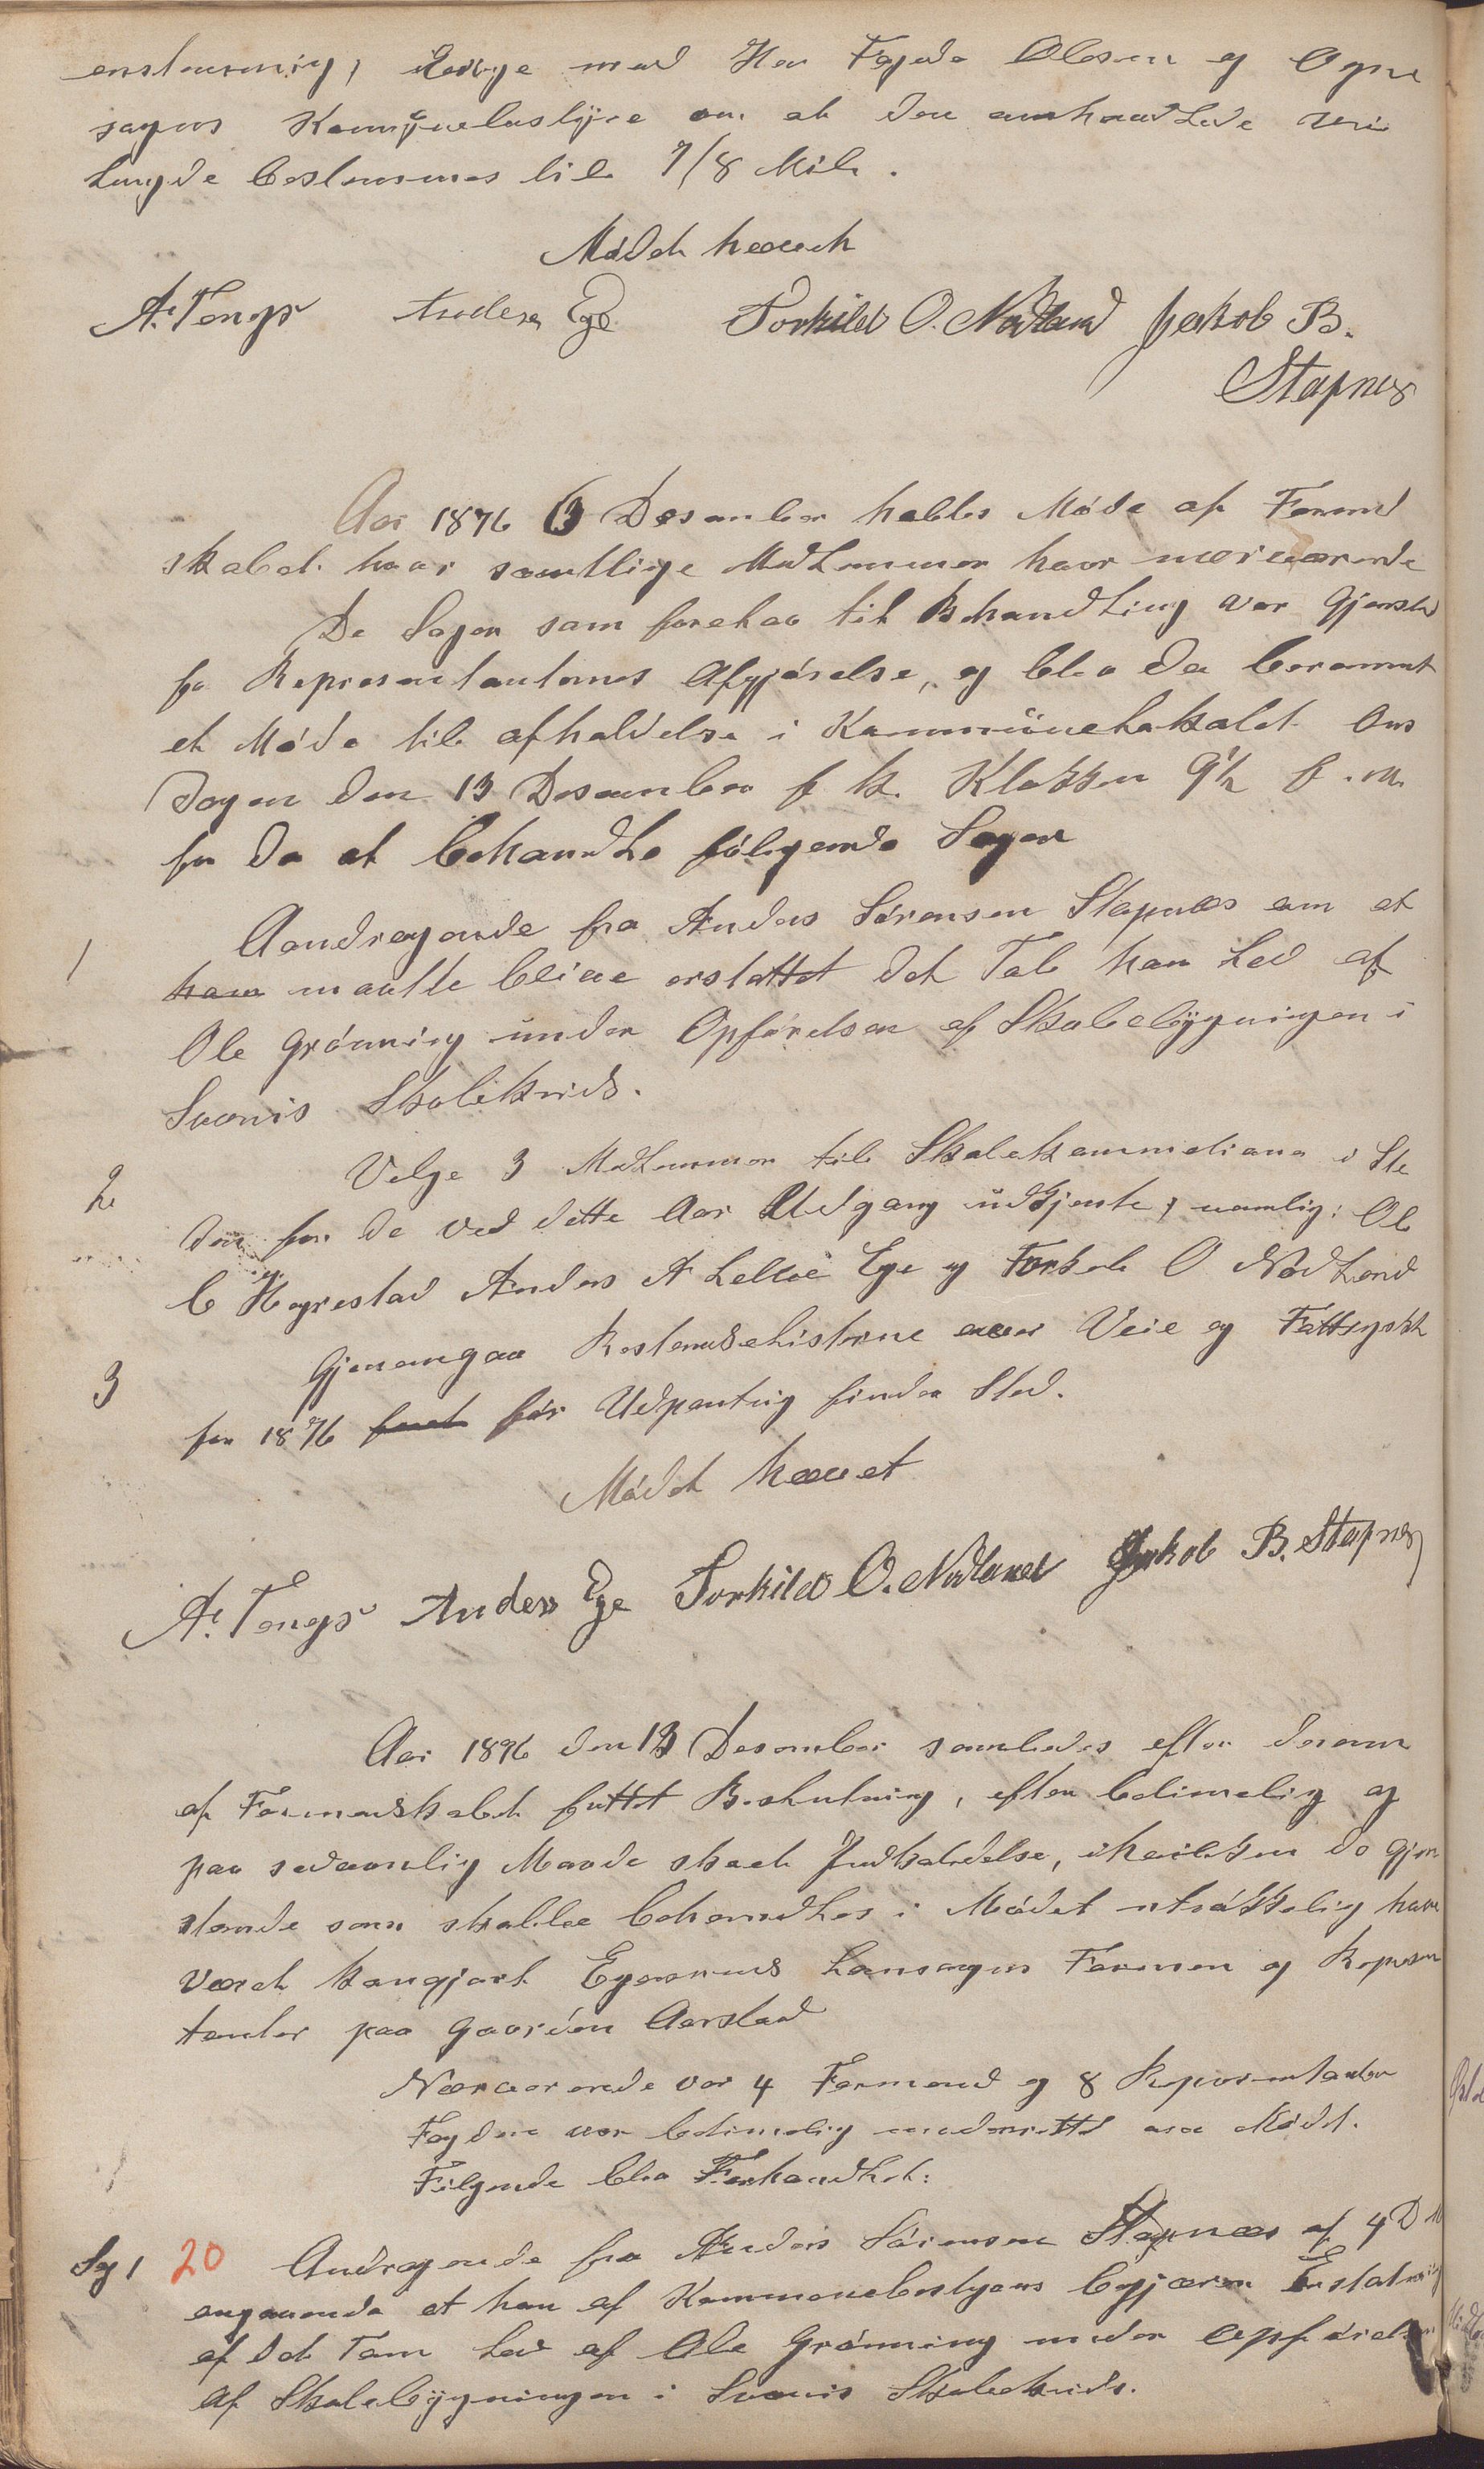 enstemmig, med Her Foged Olesen og Ogne
sogns Kommunebestyre om at den omhandlede vei
lengde bestemmes til 7/8 Mil.
Mødet hævet
A. Tengs Anders Ege Torkild O. Nødland Jakob B.
Stapnes
Aar 1876 6 Desember holtes Møde af Formd
skabet hvor samtllige Medlemmer havr nærværende
De Sager som foretas til Behandling var Gjenstd
for Representanternes Afgjørelse, og blev da berammet
et Møde til afholdelse i Kommünelokalet Ons
dagen den 13 Desember f k. Klokken 9½ F.M.
for da at behandle følgende Sager
1 Aandragende fra Anders Sørensen Stapnæs om at
ham maatte blive erstattet det Tab han led af
Ole Grønning ünder Opførelsen af Skolebÿgningen i
Svanes Skolekreds.
2 Velge 3 Medlemmer til Skolekommetionen i Ste
den for de ved dette Aar Udgang üdtjente, nemlig: Ole
C Hegrestad Anders A Lellie Ege og Torkel O Nødland
3 Gjenemgaa Restanselisterne over Veie og Fattigskt
for 1876 før Udpanting finder Sted.
Mødet hævet
A. Tengs Anders Ege Torkild O. Nødland Jakob B. Stapnes
Aar 1876 den 13 Desember samledes efter derom
af Formandskabet fattet Beslutning, efter betimelig og
paa sedvanlig Maade skeet Indkaldelse, ihvilken de Gjen
stande som skulle behandles i Mødet utrøkkelig have
været kungjort Egersunds Lansogns Formen og Represn
tanter paa Gaarden Aarstad
Nærværende var 4 Formend og 8 Representanter
Fogden var betimelig underrettet om Mødet.
Følgende blev Forhandlet:
Sg 1 20 Andragende fra Anders Sørensen Stapnæs af 4 D M
angaaende at han af Kommunebestyrens begjærer Erstatning
af det Tam led af Ole Grønning under Opførelsen
af Skolebÿgningen i Svanes Skolekreds.